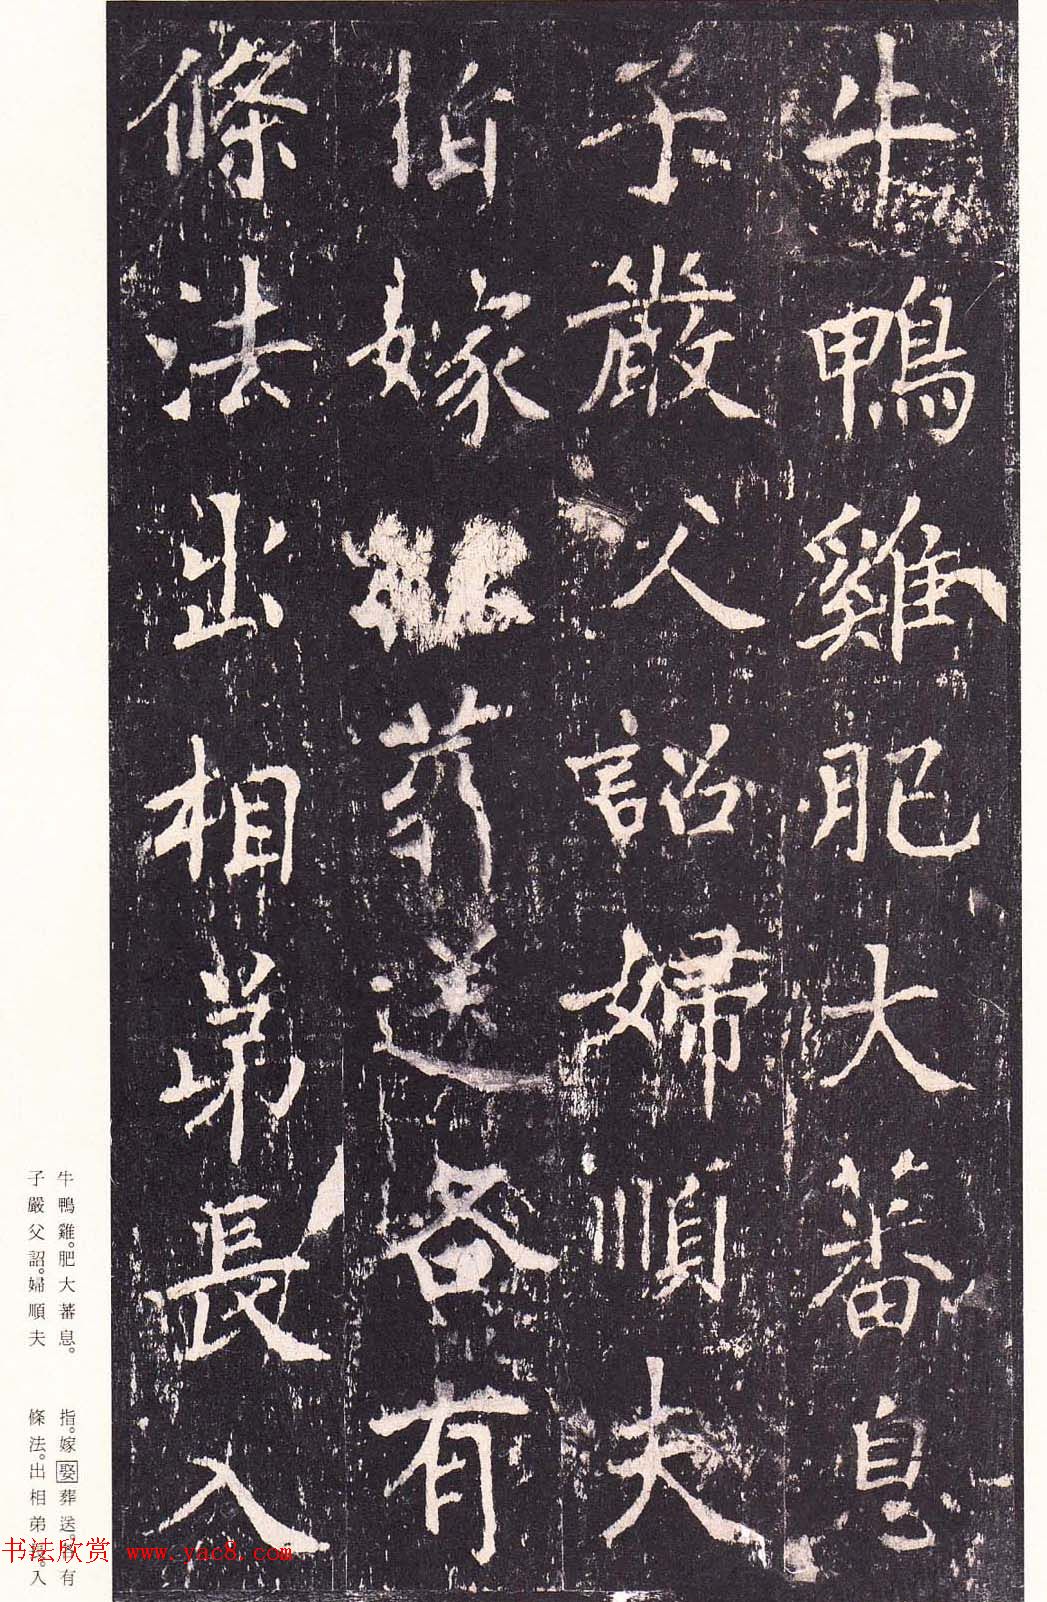 牛鴨雞肥大蕃息
子嚴父詔婦順夫
指嫁葬送各有
條法出相弟長入
牛鴨雞。肥大蕃息。
子嚴父詔。婦順夫
指。嫁娶葬送。各有
條法。出相弟長。入
书法欣赏 www.yac8.com